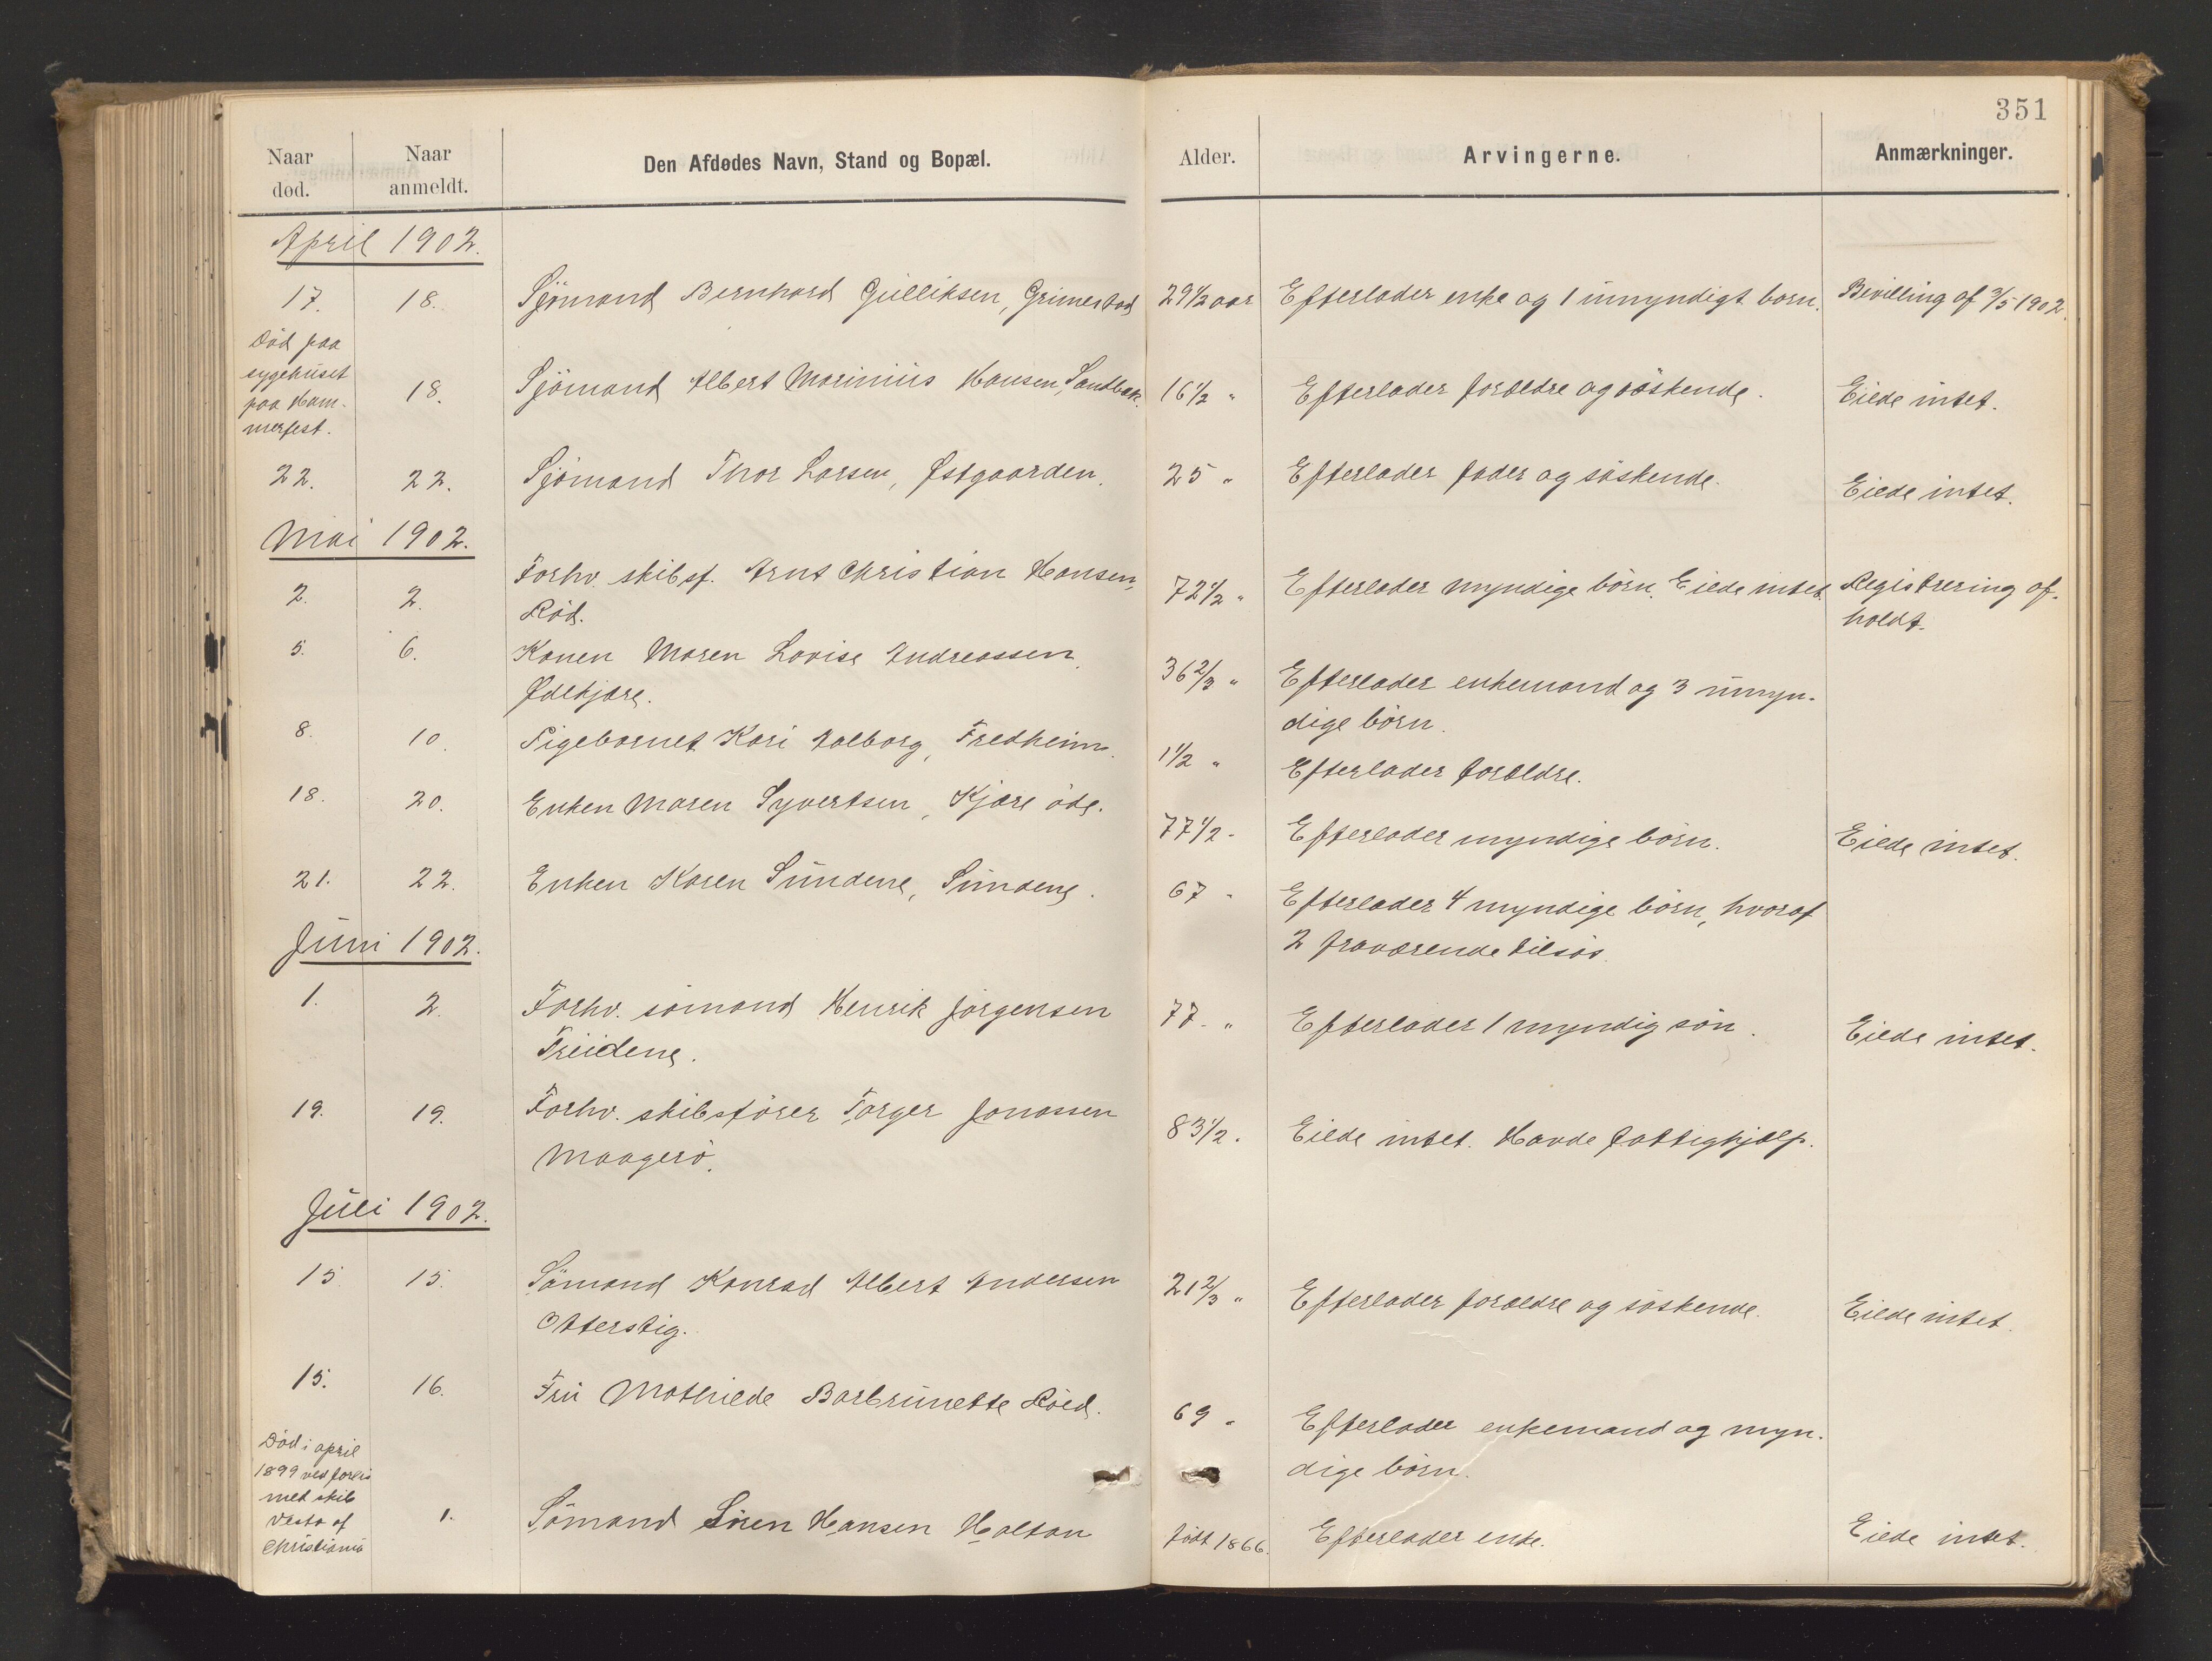 351
Naar død. Naar anmeldt. Den Afdødes Navn, Stand og Bopæl. Alder. Arvingerne. Anmærkninger.
April 1902.
17. 18. Sjömand Bernhard Gulliksen, Grimestad 29 1/2 aar Efterlader enke og 1 umyndigt barn. Bevilling af 3/5 1902.
Död paa
sygehuset
paa Ham-
merfest.
18. Sjömand Albert Marinius Hansen, Sandbæk. 16 1/2 " Efterlader forældre og söskende. Eiede intet.
22. 22. Sjömand Thor Larsen, Østgaarden. 25 " Efterlader fader og söskende. Eiede intet.
Mai 1902.
2. 2. Forhv. skibsf. Arnt Christian Hansen, 72 1/2 " Efterlader myndige börn. Eiede intet. Registrering af-
Röd. holdt.
5. 6. Konen Maren Lovise Andreassen. 36 2/3 " Efterlader enkemand og 3 umyn-
Ødekjære. dige börn.
8. 10. Pigebarnet Kari Aalborg, Fredheim. 1 1/2 " Efterlader forældre.
18. 20. Enken Maren Syvertsen, Kjære öde. 77 1/2 - Efterlader myndige börn. Eiede intet.
21. 22. Enken Karen Sundene, Sundene. 67 - Efterlader 4 myndige börn, hvoraf
2 fraværende tilsös.
Juni 1902.
1. 2. Forhv. sömand Henrik Jörgensen 77. " Efterlader 1 myndig sön. Eiede intet.
19. 19. Forhv. skibsförer Torger Jonassen 83 1/2. Eiede intet. Havde fattighjælp.
Maagerö.
Juli 1902.
15. 15. Sömand Konrad Albert Andersen 21 2/3 " Efterlader forældre og söskende. Eiede intet.
Otterstig.
15. 16. Fru Mathilde Barbrunette Röed. 69 " Efterlader enkemand og myn-
dige börn.
Död i april
1899 ved forlis
med skib
Vasta af
Christiania
1. Sömand Sören Hansen Haltan födt 1866. Efterlader enke. Eiede intet.